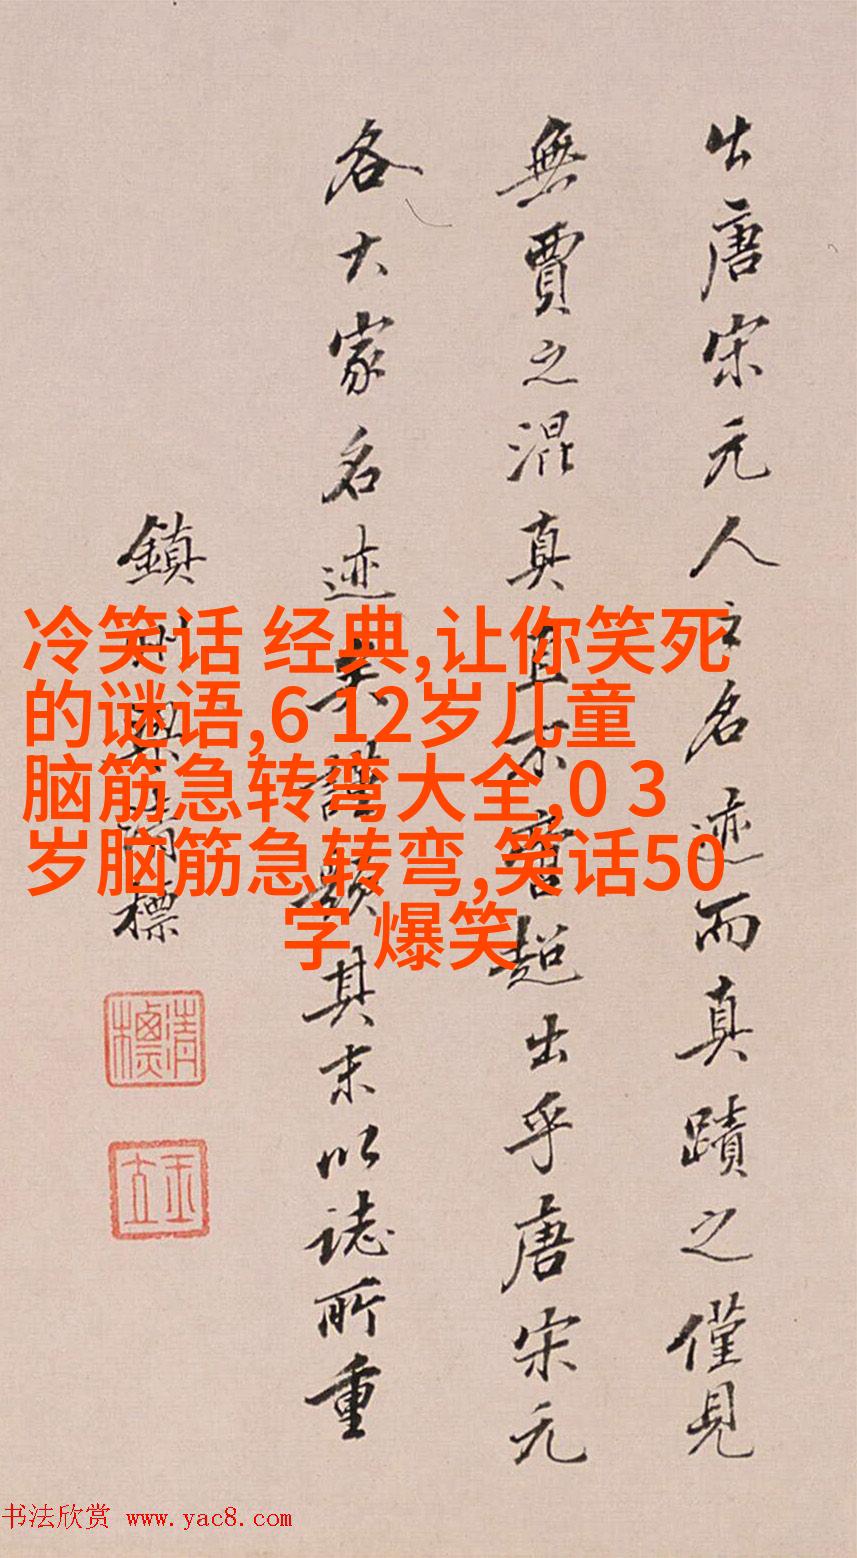 出唐宋元人之名迹而真蹟之僅見
無賈之混真且不啻超出乎唐宋元
各大家名迹矣謹題其末以誌所重
鎮清標
清標
冷笑话 经典,让你笑死
的谜语,6 12岁儿童
脑筋急转弯大全,0 3
岁脑筋急转弯,笑话50
字 爆笑
书法欣赏 www.yac8.com